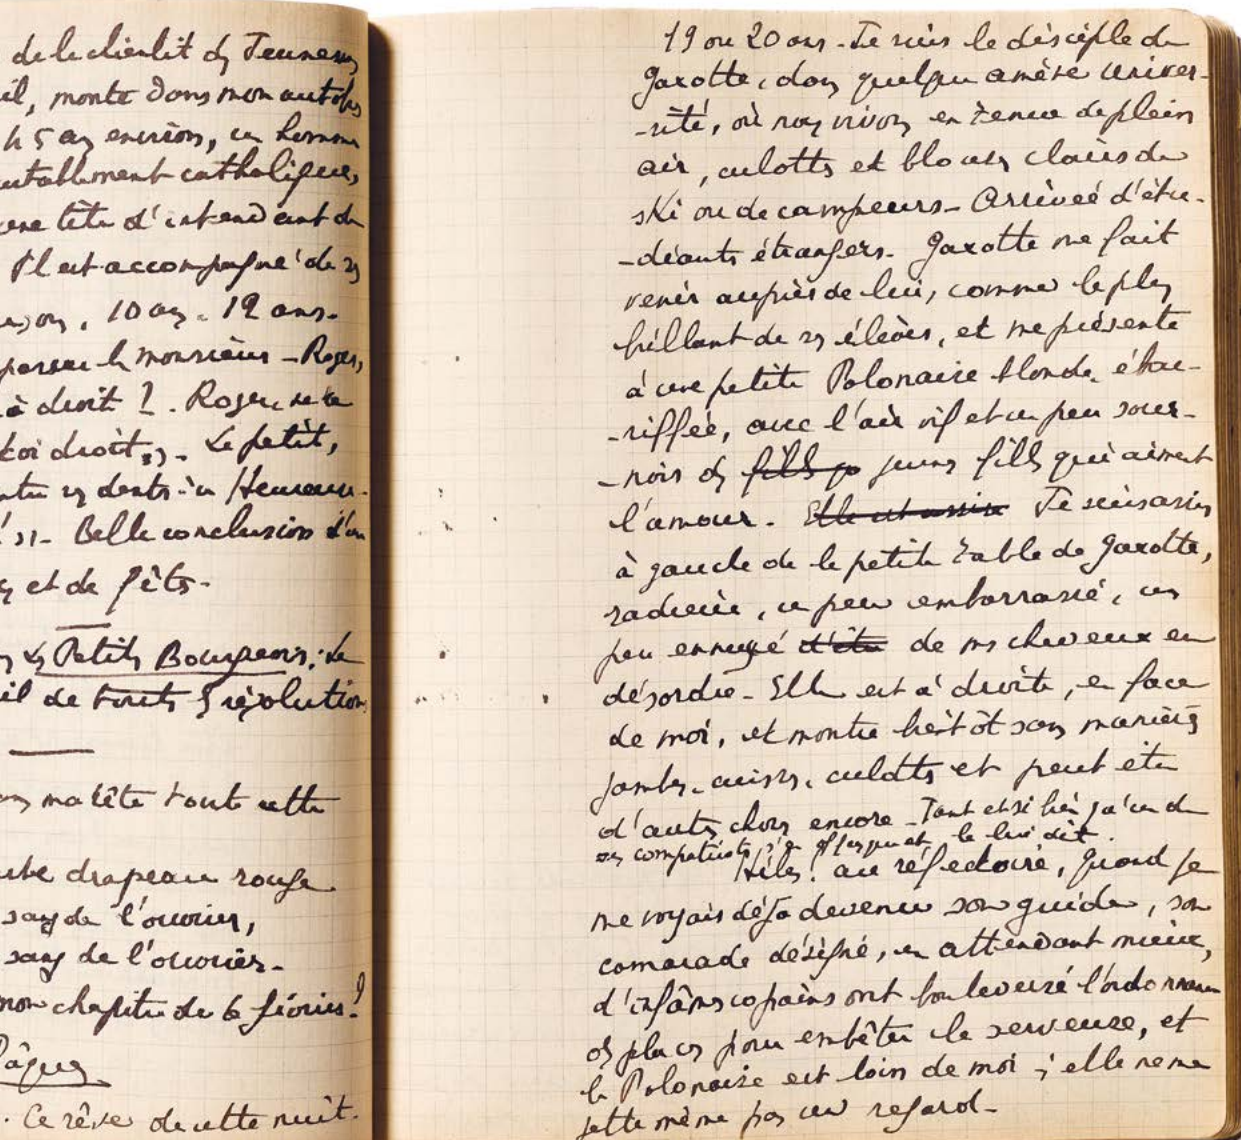 de la clientèle des Jeunesses
il, monte dans mon autobus
45 ans environ, un homme
catholique,
une tête d'intendant de
Il est accompagné de ses
10 ans, 12 ans.
le monsieur - Roger,
à droit ? . Roger,
toi droit ». Le petit,
ses dents : « Heureuse-
». Belle conclusion d'un
et de fêtes.
Les Petits Bourgeois : le
de toutes les révolutions
ma tête toute cette
drapeau rouge
sang de l'ouvrier,
sang de l'ouvrier.
mon chapitre du 6 février !
Pâques
. Ce rêve de cette nuit.
19 ou 20 ans. Je suis le disciple de
Gaxotte, dans quelque amène univer-
-sité, où nous vivons en tenue de plein
air, culottes et blouses claires de
ski ou de campeurs. Arrivée d'étu-
-diants étrangers. Gaxotte me fait
venir auprès de lui, comme le plus
brillant de ses élèves, et me présente
à une petite Polonaise blonde, ébou-
-riffée, avec l'air vif et un peu sour-
-nois des jeunes filles qui aiment
l'amour. Elle est assise Je suis assis
à gauche de la petite table de Gaxotte,
radieux, un peu embarrassé, un
peu ennuyé d'être de mes cheveux en
désordre. Elle est à droite, en face
de moi, et montre bientôt sans manières
jambes, cuisses, culottes et peut être
d'autres choses encore. Tant et si bien qu'un de
ses compatriotes s'en offusquant, le lui dit.
Hélas ! au réfectoire, quand je
me voyais déjà devenu son guide, son
camarade désigné, en attendant mieux,
d'infâmes copains ont bouleversé l'ordonnance
des places pour embêter la serveuse, et
la Polonaise est loin de moi ; elle ne me
jette même pas un regard.